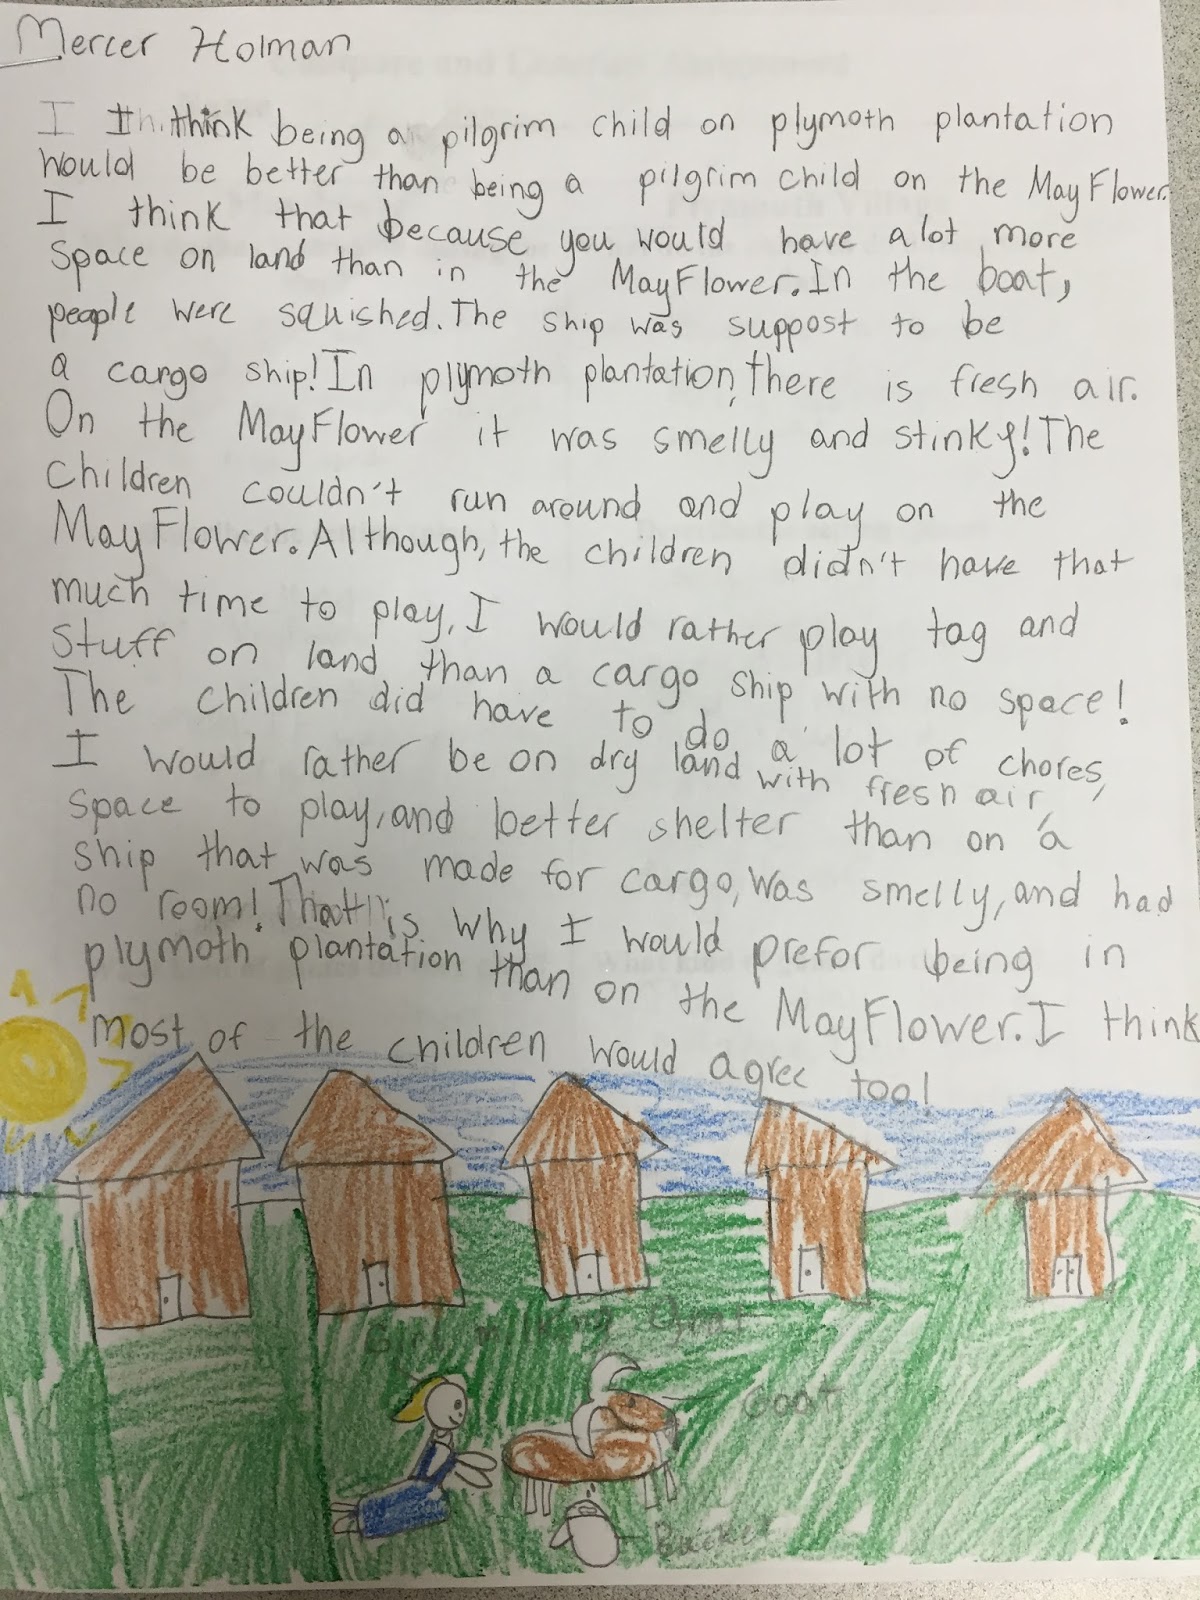 Mercer Holman
I think being a pilgrim child on plymoth plantation
would be better than being a pilgrim child on the MayFlower.
I think that because you would have alot more
space on land than in the MayFlower. In the boat,
people were squished. The ship was suppost to be
a cargo ship! In plymoth plantation, there is fresh air.
On the MayFlower it was smelly and stinky! The
children couldn't run around and play on the
MayFlower. Although, the children didn't have that
much time to play, I would rather play tag and
stuff on land than a cargo ship with no space!
The children did have to do a lot of chores,
I would rather be on dry land with fresh air,
space to play, and better shelter than on a
ship that was made for cargo, was smelly, and had
no room! That is why I would prefor being in
plymoth plantation than on the MayFlower. I think
most of the children would agree too!
Girl milking Goat
Goat
Bucket